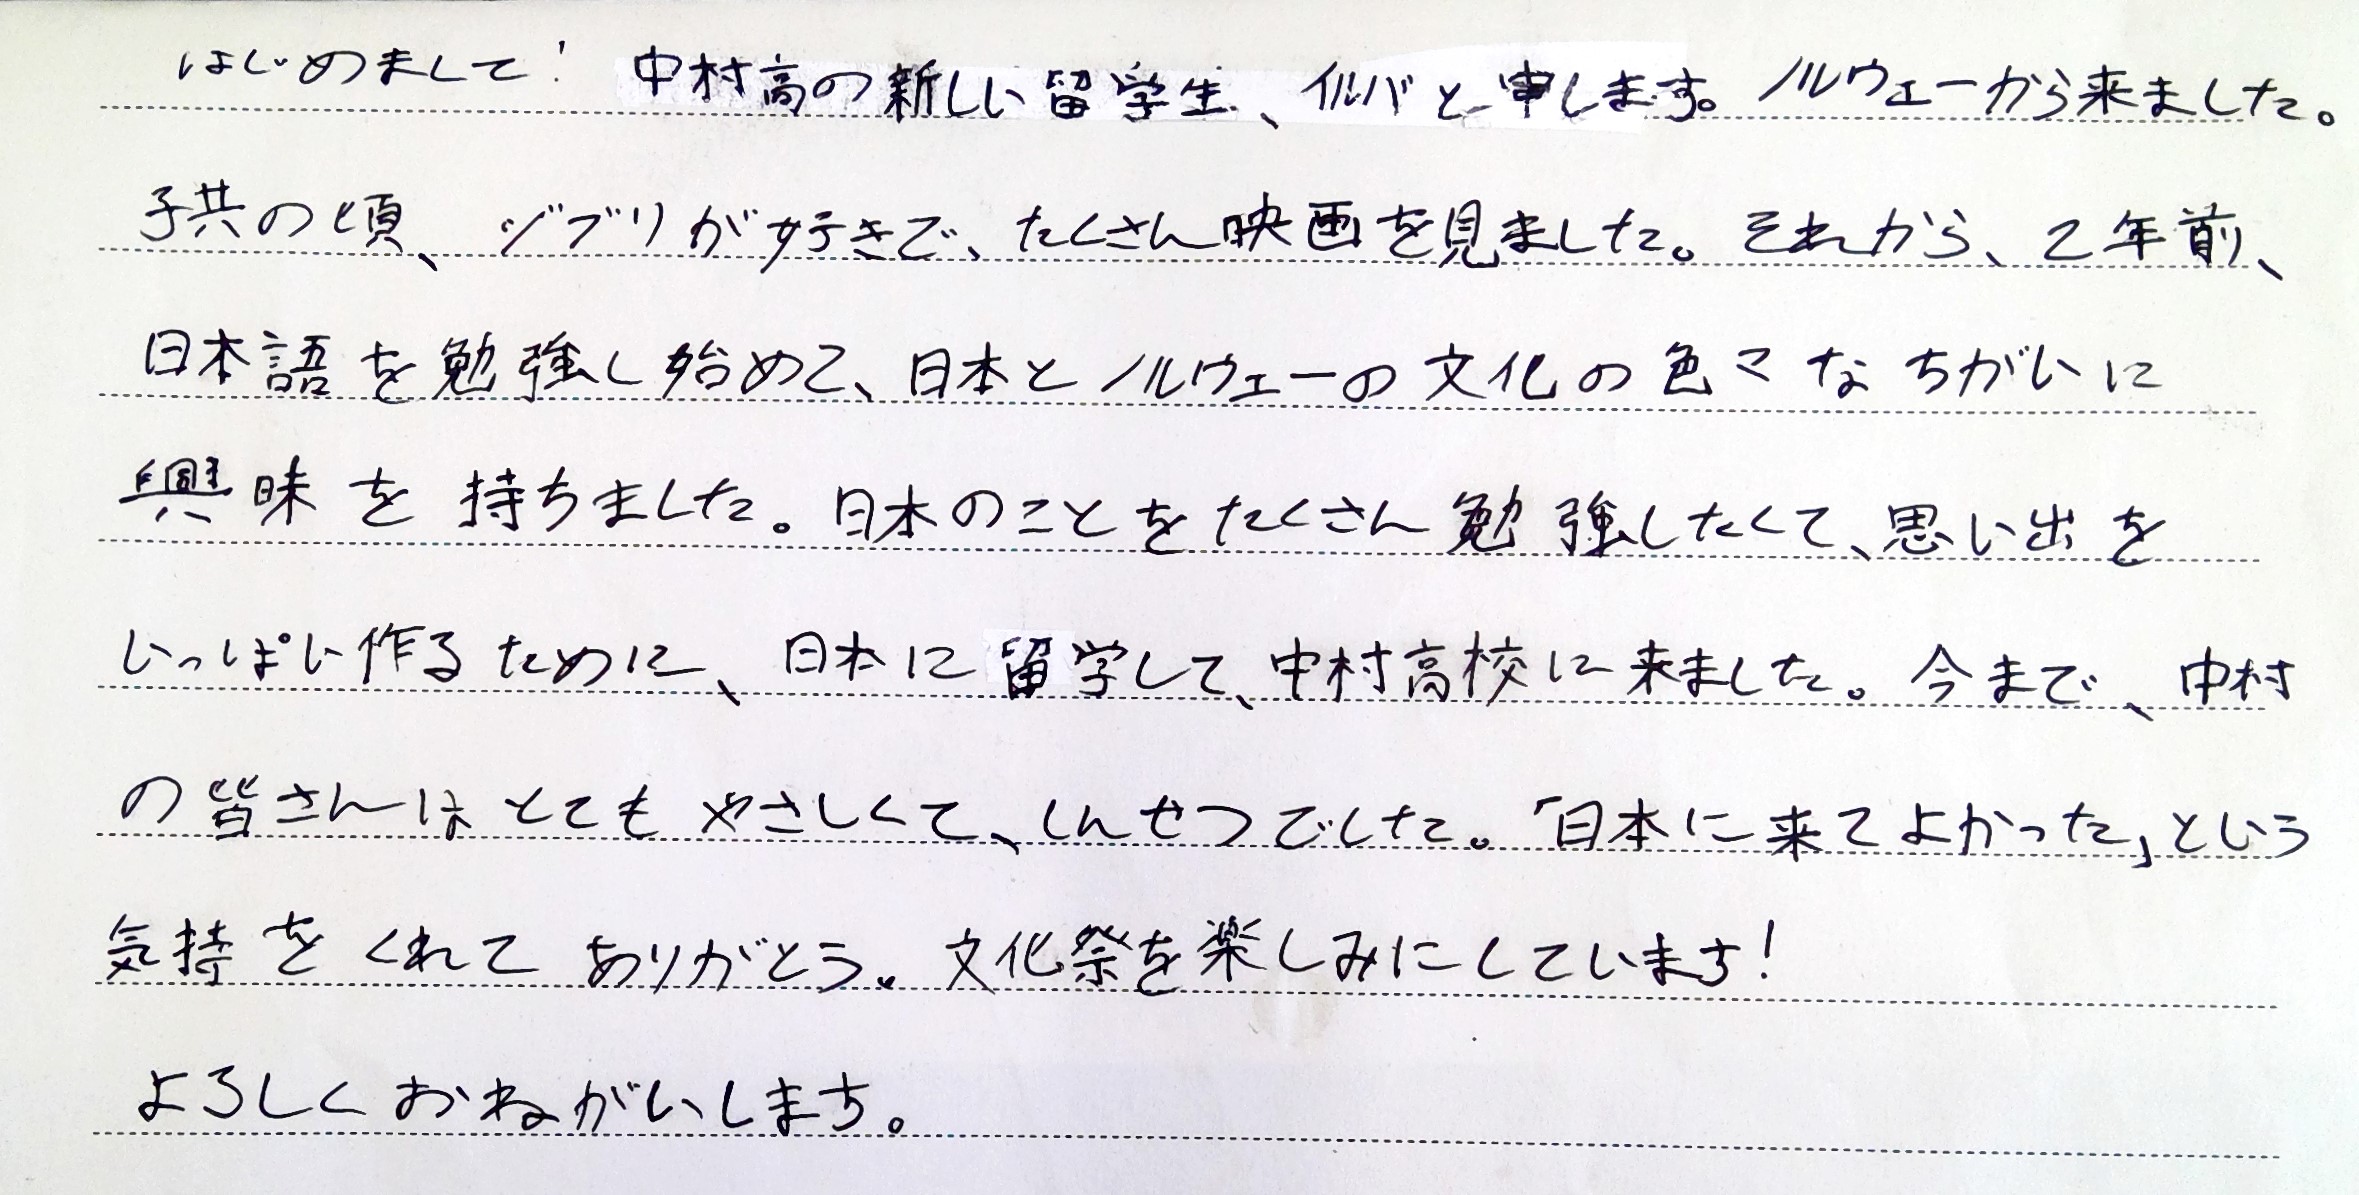 はじめまして！中村高の新しい留学生、イルバと申します。ノルウェーから来ました。
子供の頃、ジブリが好きで、たくさん映画を見ました。それから、2年前、
日本語を勉強し始めて、日本とノルウェーの文化の色々なちがいに
興味を持ちました。日本のことをたくさん勉強したくて、思い出を
いっぱい作るために、日本に留学して、中村高校に来ました。今まで、中村
の皆さんはとてもやさしくて、しんせつでした。「日本に来てよかった」という
気持をくれてありがとう。文化祭を楽しみにしています！
よろしくおねがいします。